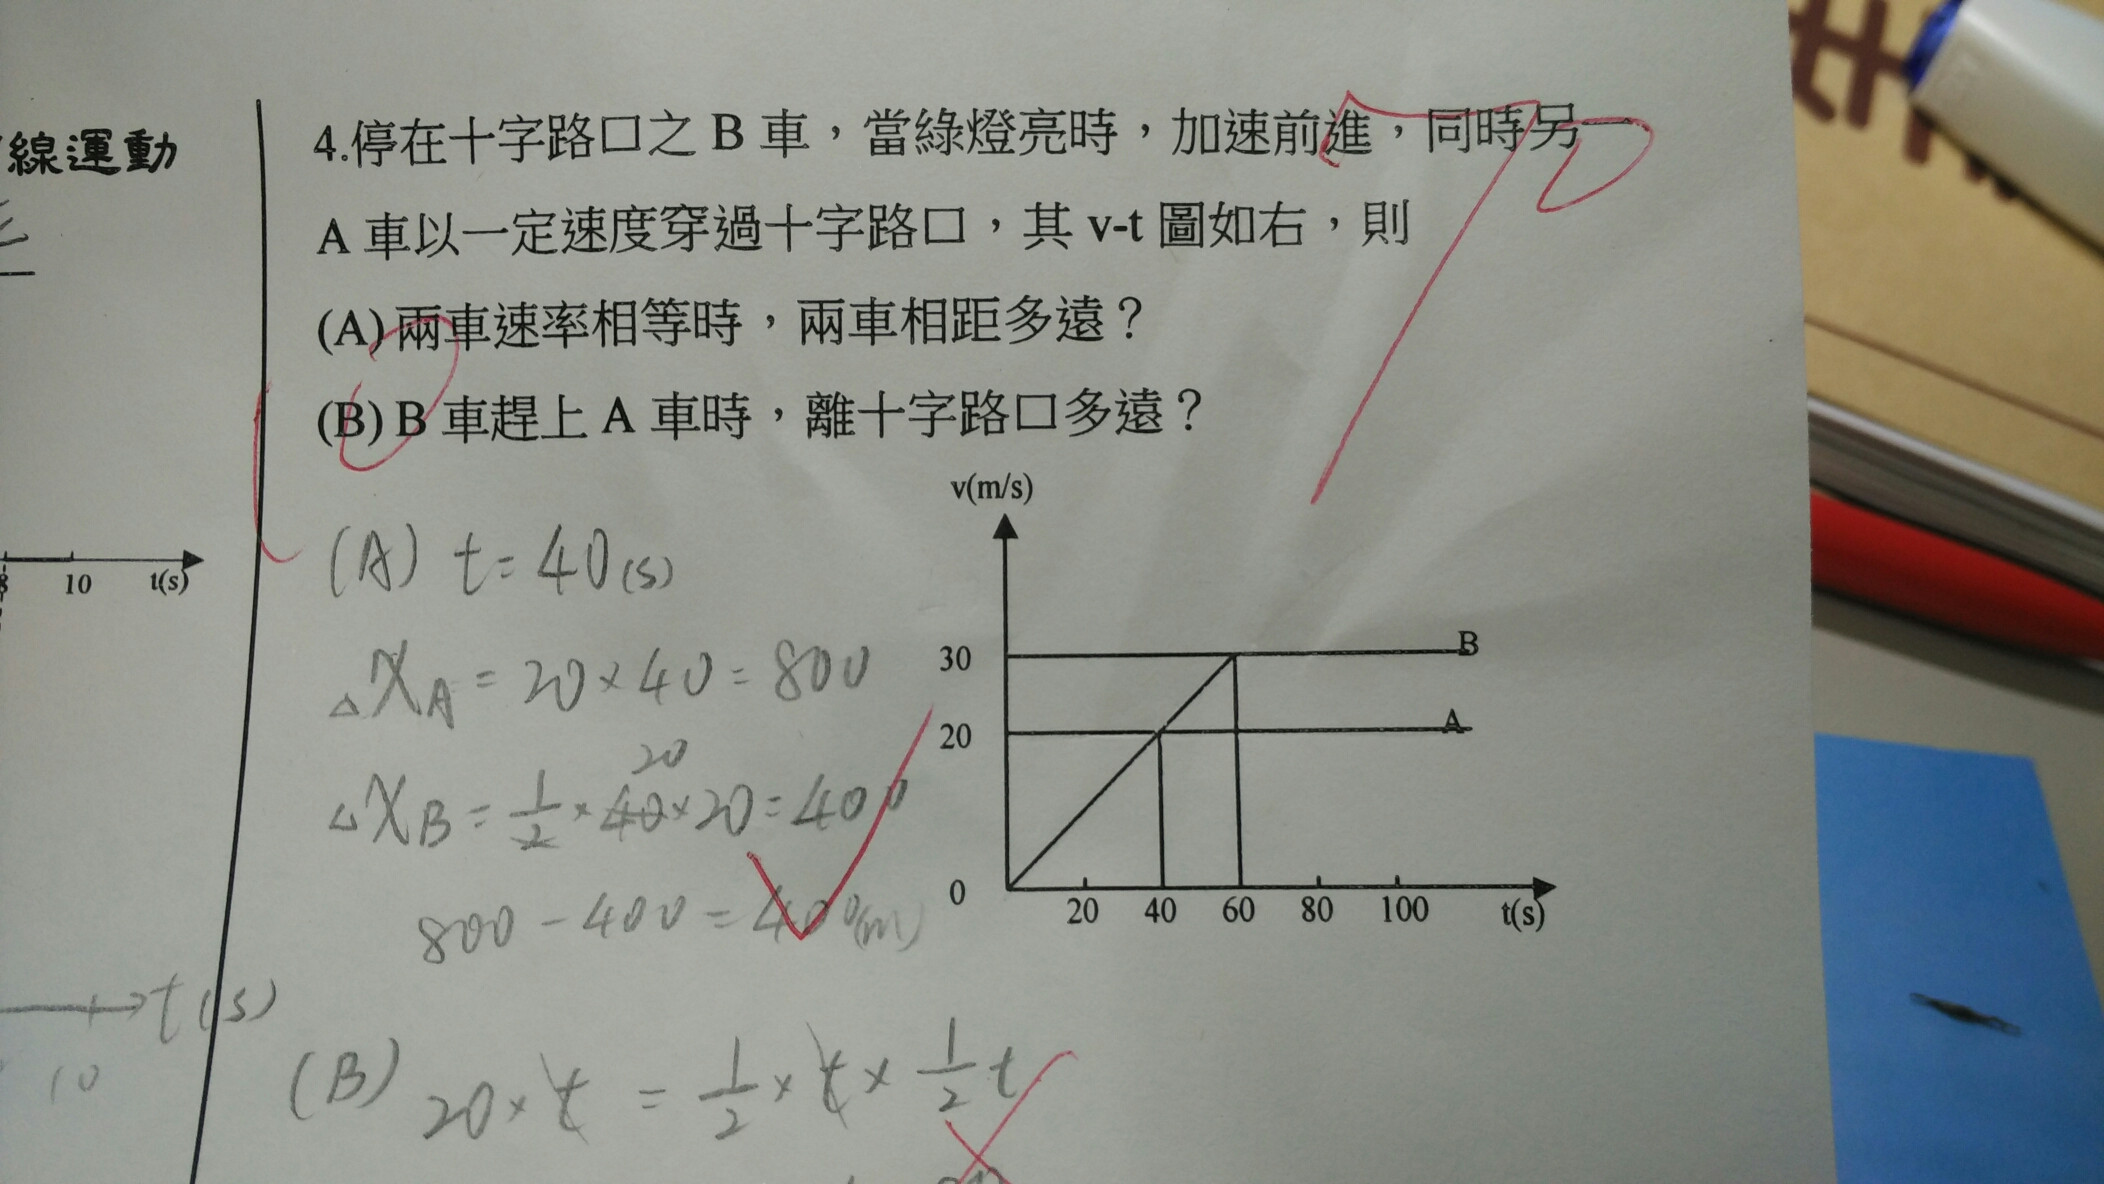 線運動
4.停在十字路口之 B 車，當綠燈亮時，加速前進，同時另一
A 車以一定速度穿過十字路口，其 v-t 圖如右，則
(A)兩車速率相等時，兩車相距多遠？
(B) B 車趕上 A 車時，離十字路口多遠？
(A) t=40(s)
△XA = 20×40 = 800
20
△XB = 1/2 × 40×20 = 400
800 - 400 = 400(m)
(B) 20×t = 1/2 × t × 1/2 t
v(m/s)
30
B
20
A
0
20 40 60 80 100 t(s)
10 t(s)
t(s)
10